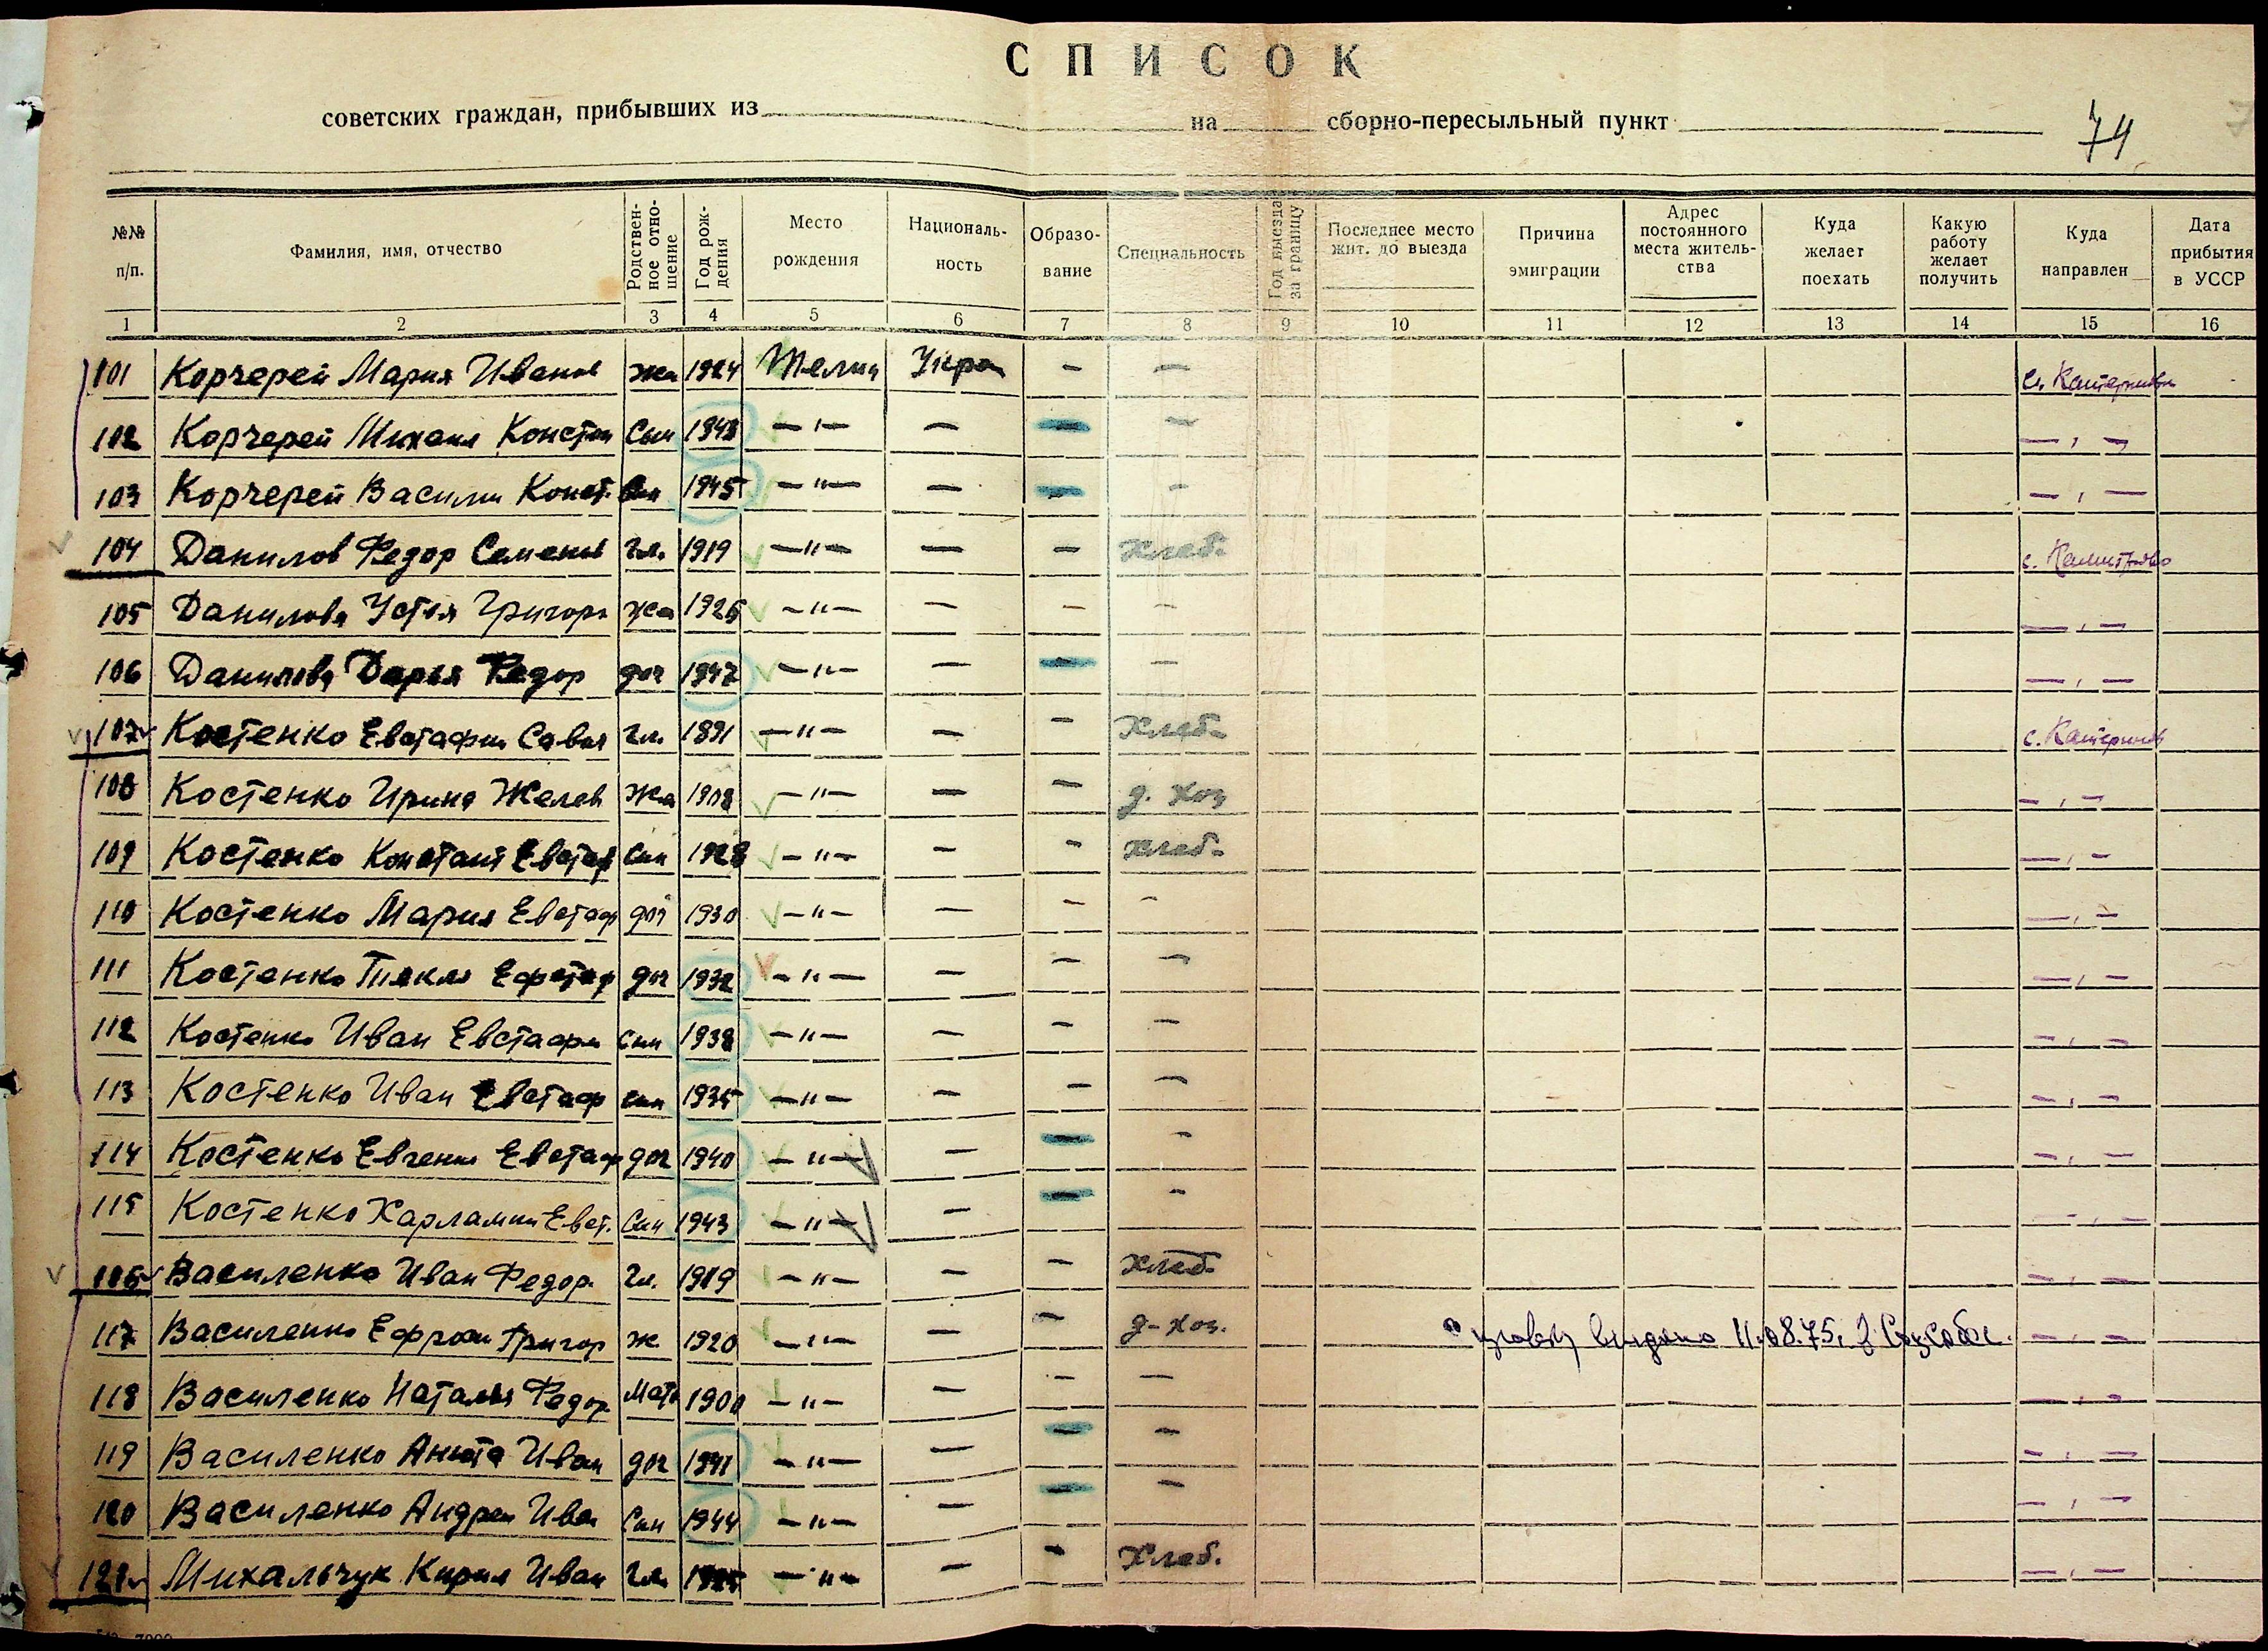 СПИСОК
советских граждан, прибывших из на сборно-пересыльный пункт
74
№№ п/п. Фамилия, имя, отчество Родственное отношение Год рождения Место рождения Националь-ность Образо-вание Специальность Год выезда за границу Последнее место жит. до выезда Причина эмиграции Адрес постоянного места житель-ства Куда желает поехать Какую работу желает получить Куда направлен Дата прибытия в УССР
1 2 3 4 5 6 7 8 9 10 11 12 13 14 15 16
101 Корчерей Мария Иванов жа 1924 Укра — —
102 Корчерей Михаил Констан Сын 1943 —"— — — — —"—
103 Корчерей Васили Конст. 1945 —"— — — — —"—
104 Данилов Федор Семенов гл. 1919 —"— — — Хлеб.
105 Данилова Устя Григор жа 1925 —"— — — — —"—
106 Данилова Дарья Федор доч 1947 —"— — — — —"—
107 Костенко Евстафи Савел гл. 1891 —"— — — Хлеб.
108 Костенко Ирина Желев жа 1908 —"— — — д. хоз —"—
109 Костенко Констант Евстаф син 1928 —"— — — хлеб. —"—
110 Костенко Мария Евстаф доч 1930 —"— — — — —"—
111 Костенко Тиекля Ефстаф доч 1932 —"— — — — —"—
112 Костенко Иван Евстафи син 1938 —"— — — — —"—
113 Костенко Иван Евстаф син 1935 —"— — — — —"—
114 Костенко Евгени Евстаф доч 1940 —"— — — — —"—
115 Костенко Харлампи Евст. Син 1943 —"— — — — —"—
116 Василенко Иван Федор. Гл. 1919 —"— — — Хлеб. —"—
117 Василенко Ефроси Григор ж 1920 —"— — — д-хоз. 11.08.75. —"—
118 Василенко Наталья Федор Мать 1900 —"— — — — —"—
119 Василенко Анюта Иван доч 1941 —"— — — — —"—
120 Василенко Андреи Иван Син 1944 —"— — — — —"—
121 Михальчук Кирил Иван гл. —"— — — Хлеб. —"—